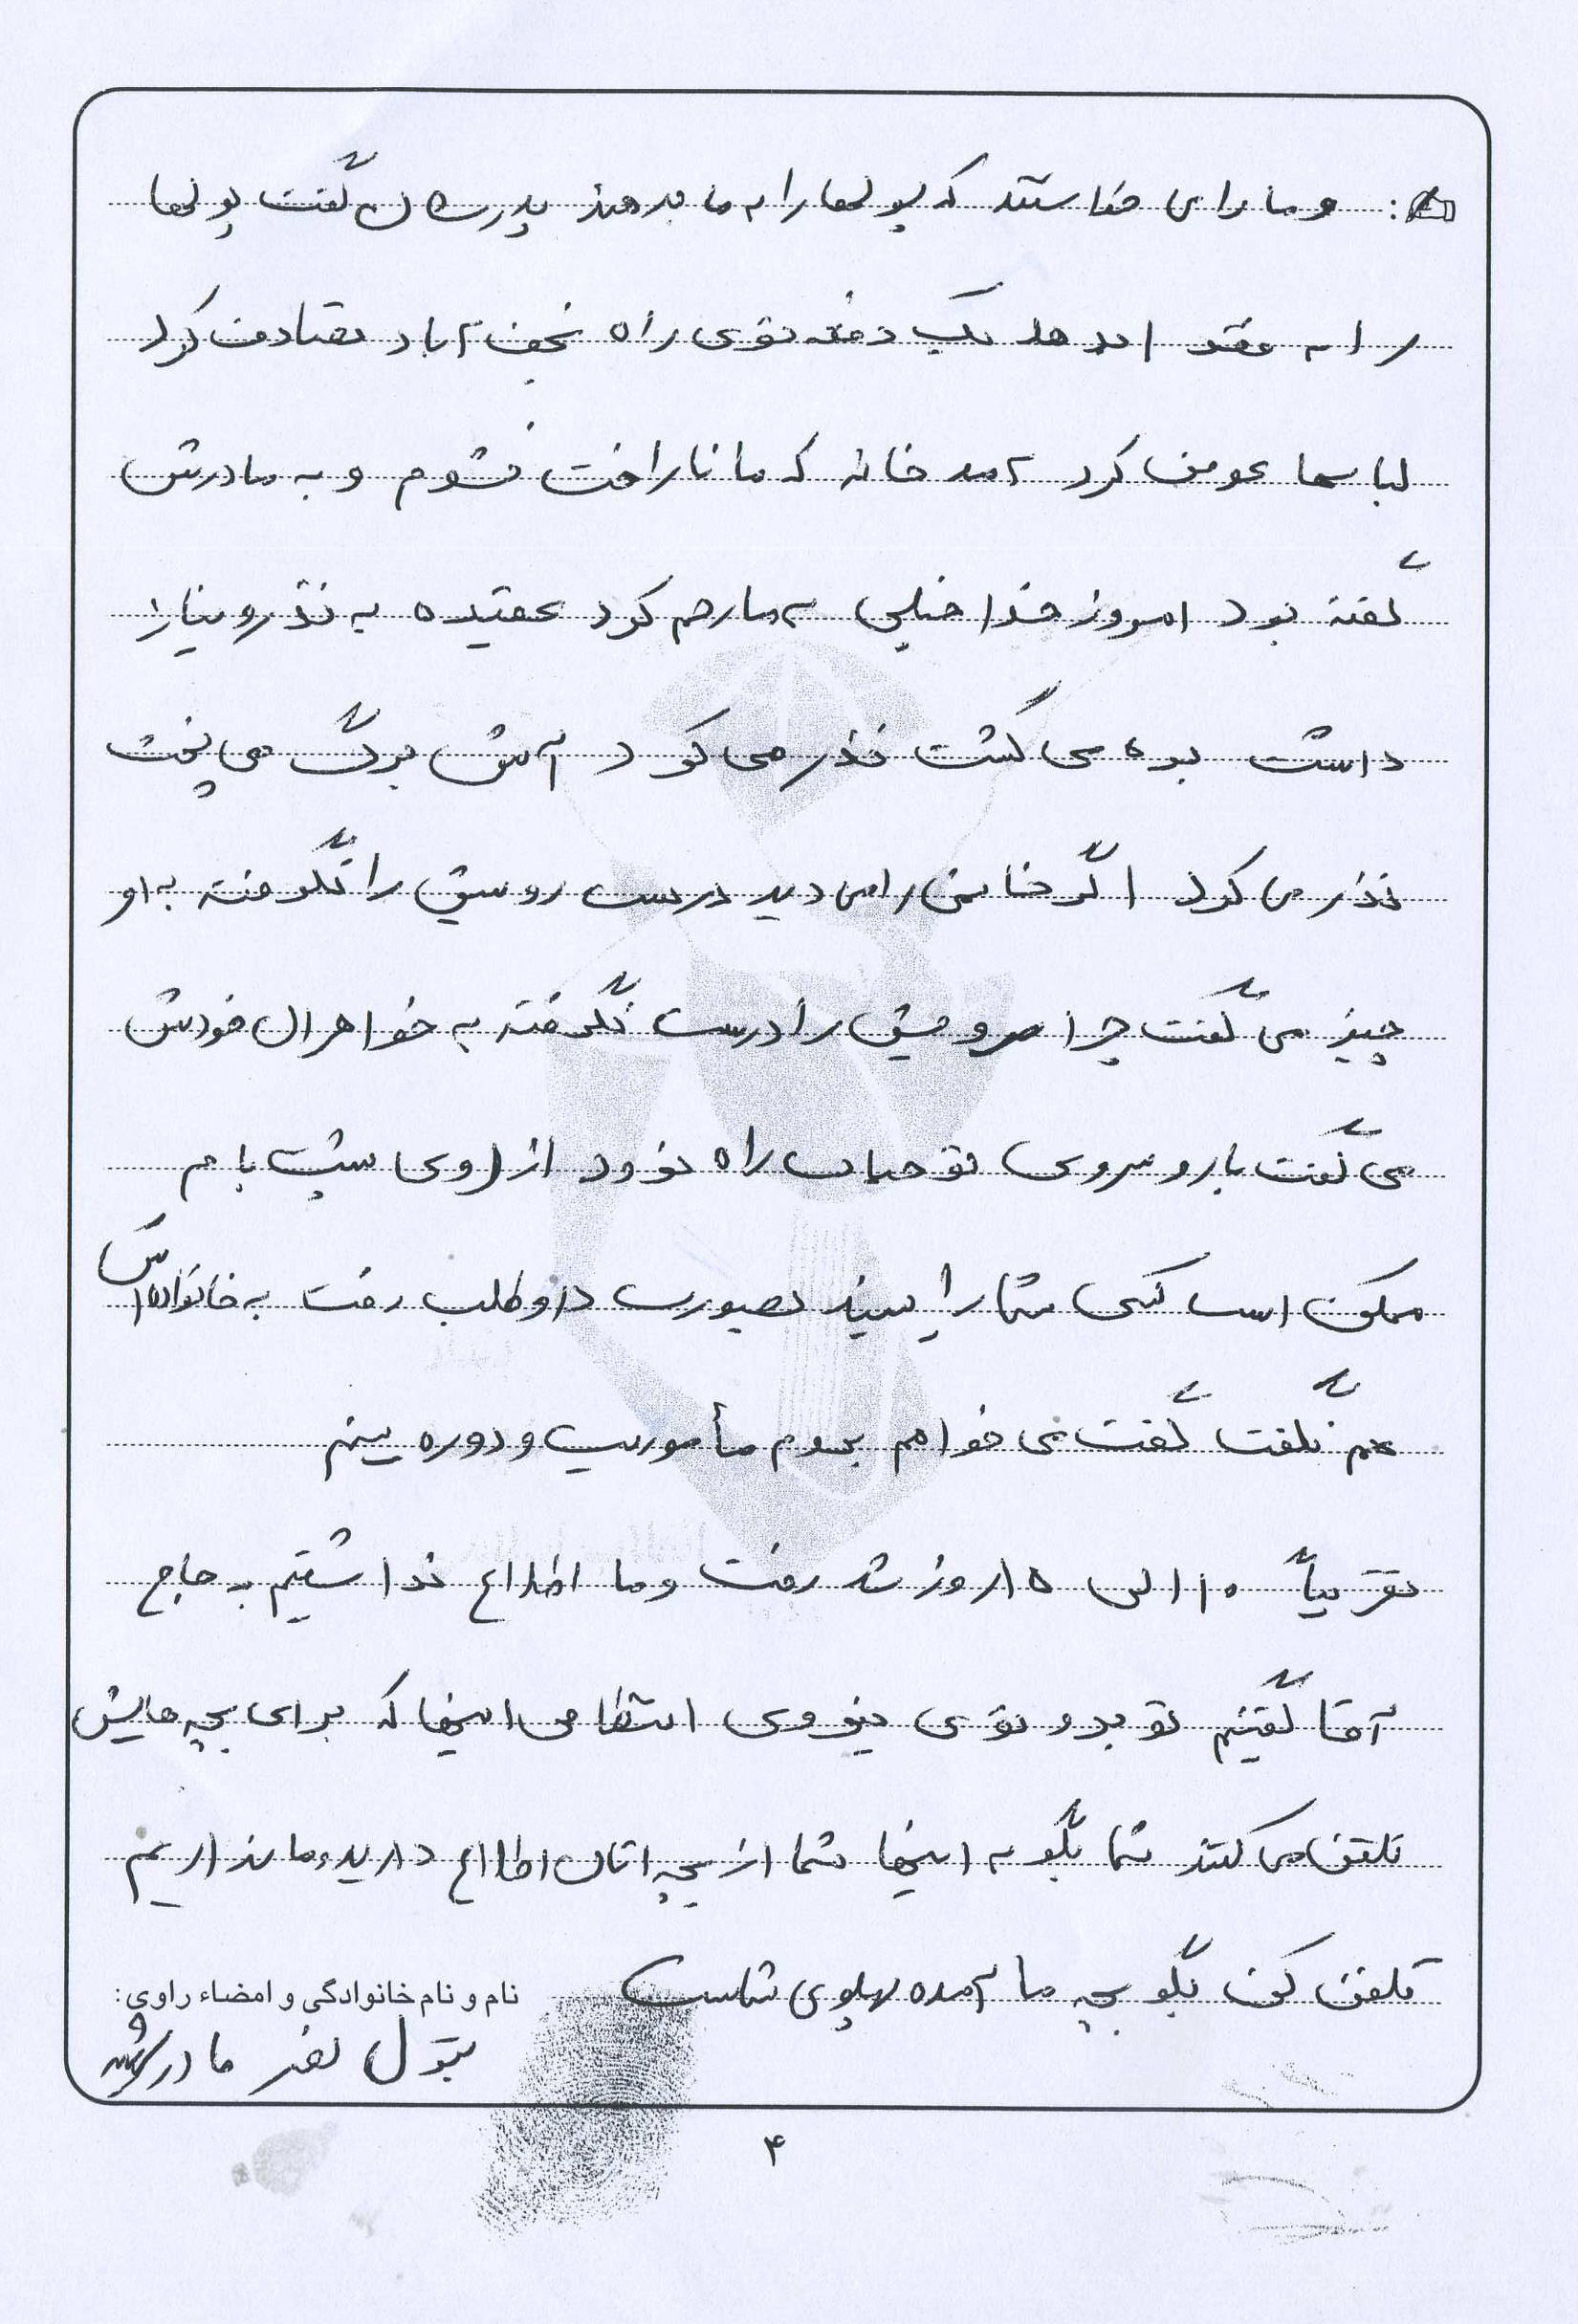 و ما برای خواستند که پولها را به ما بدهند پدرشان گفت پولها
را به فقرا بدهد یک دفعه توی راه نجف آباد تصادف کرد
لباسها عوض کرد آمد خانه که ما ناراحت نشوم و به مادرش
گفته بود امروز خدا خیلی به ما رحم کرد عقیده به نذر و نیاز را
داشت بره می کشت نذر می کرد آش برگ می پخت
نذر می کرد اگر خانمی را می دید درست رو سیش را نگرفته به او
چیز می گفت چرا رو سیش را درست نگرفته به خواهران خودش
می گفت با رو سروی تو حیاط راه نرود از روی پشت بام
ممکن است کسی شما را ببیند بصورت داوطلب رفت به خانواده اش
هم نگفت گفت می خواهم بروم مأموریت و دوره ببینم
تقریباً ۱۰ الی ۱۵ روز شد رفت و ما اطلاع نداشتیم به حاج
آقا گفتیم تو برو توی نیروی انتظامی اینها که برای بچه هایش
تلفن می کنند شما بگو به اینها شما از بچه اتان اطلاع دارید، ما نداریم
تلفن کن بگو بچه ما آمده پهلوی شماست
نام و نام خانوادگی و امضاء راوی:
بتول نصر مادر شهید
۴